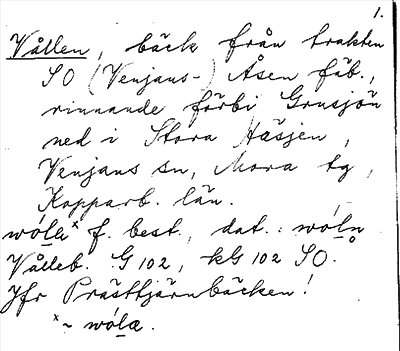 1.
Vållen, bäck från trakten
SO (Venjans-) Åsen fäb.,
rinnande förbi Grusjön
ned i Stora Häsjen,
Venjans sn, Mora tg,
Kopparb. län.
wóla˟ f. best., dat.: wóln̥
Vålleb. G 102, kG 102 SO.
Jfr Prästtjärnbäcken!
˟~ wóla.